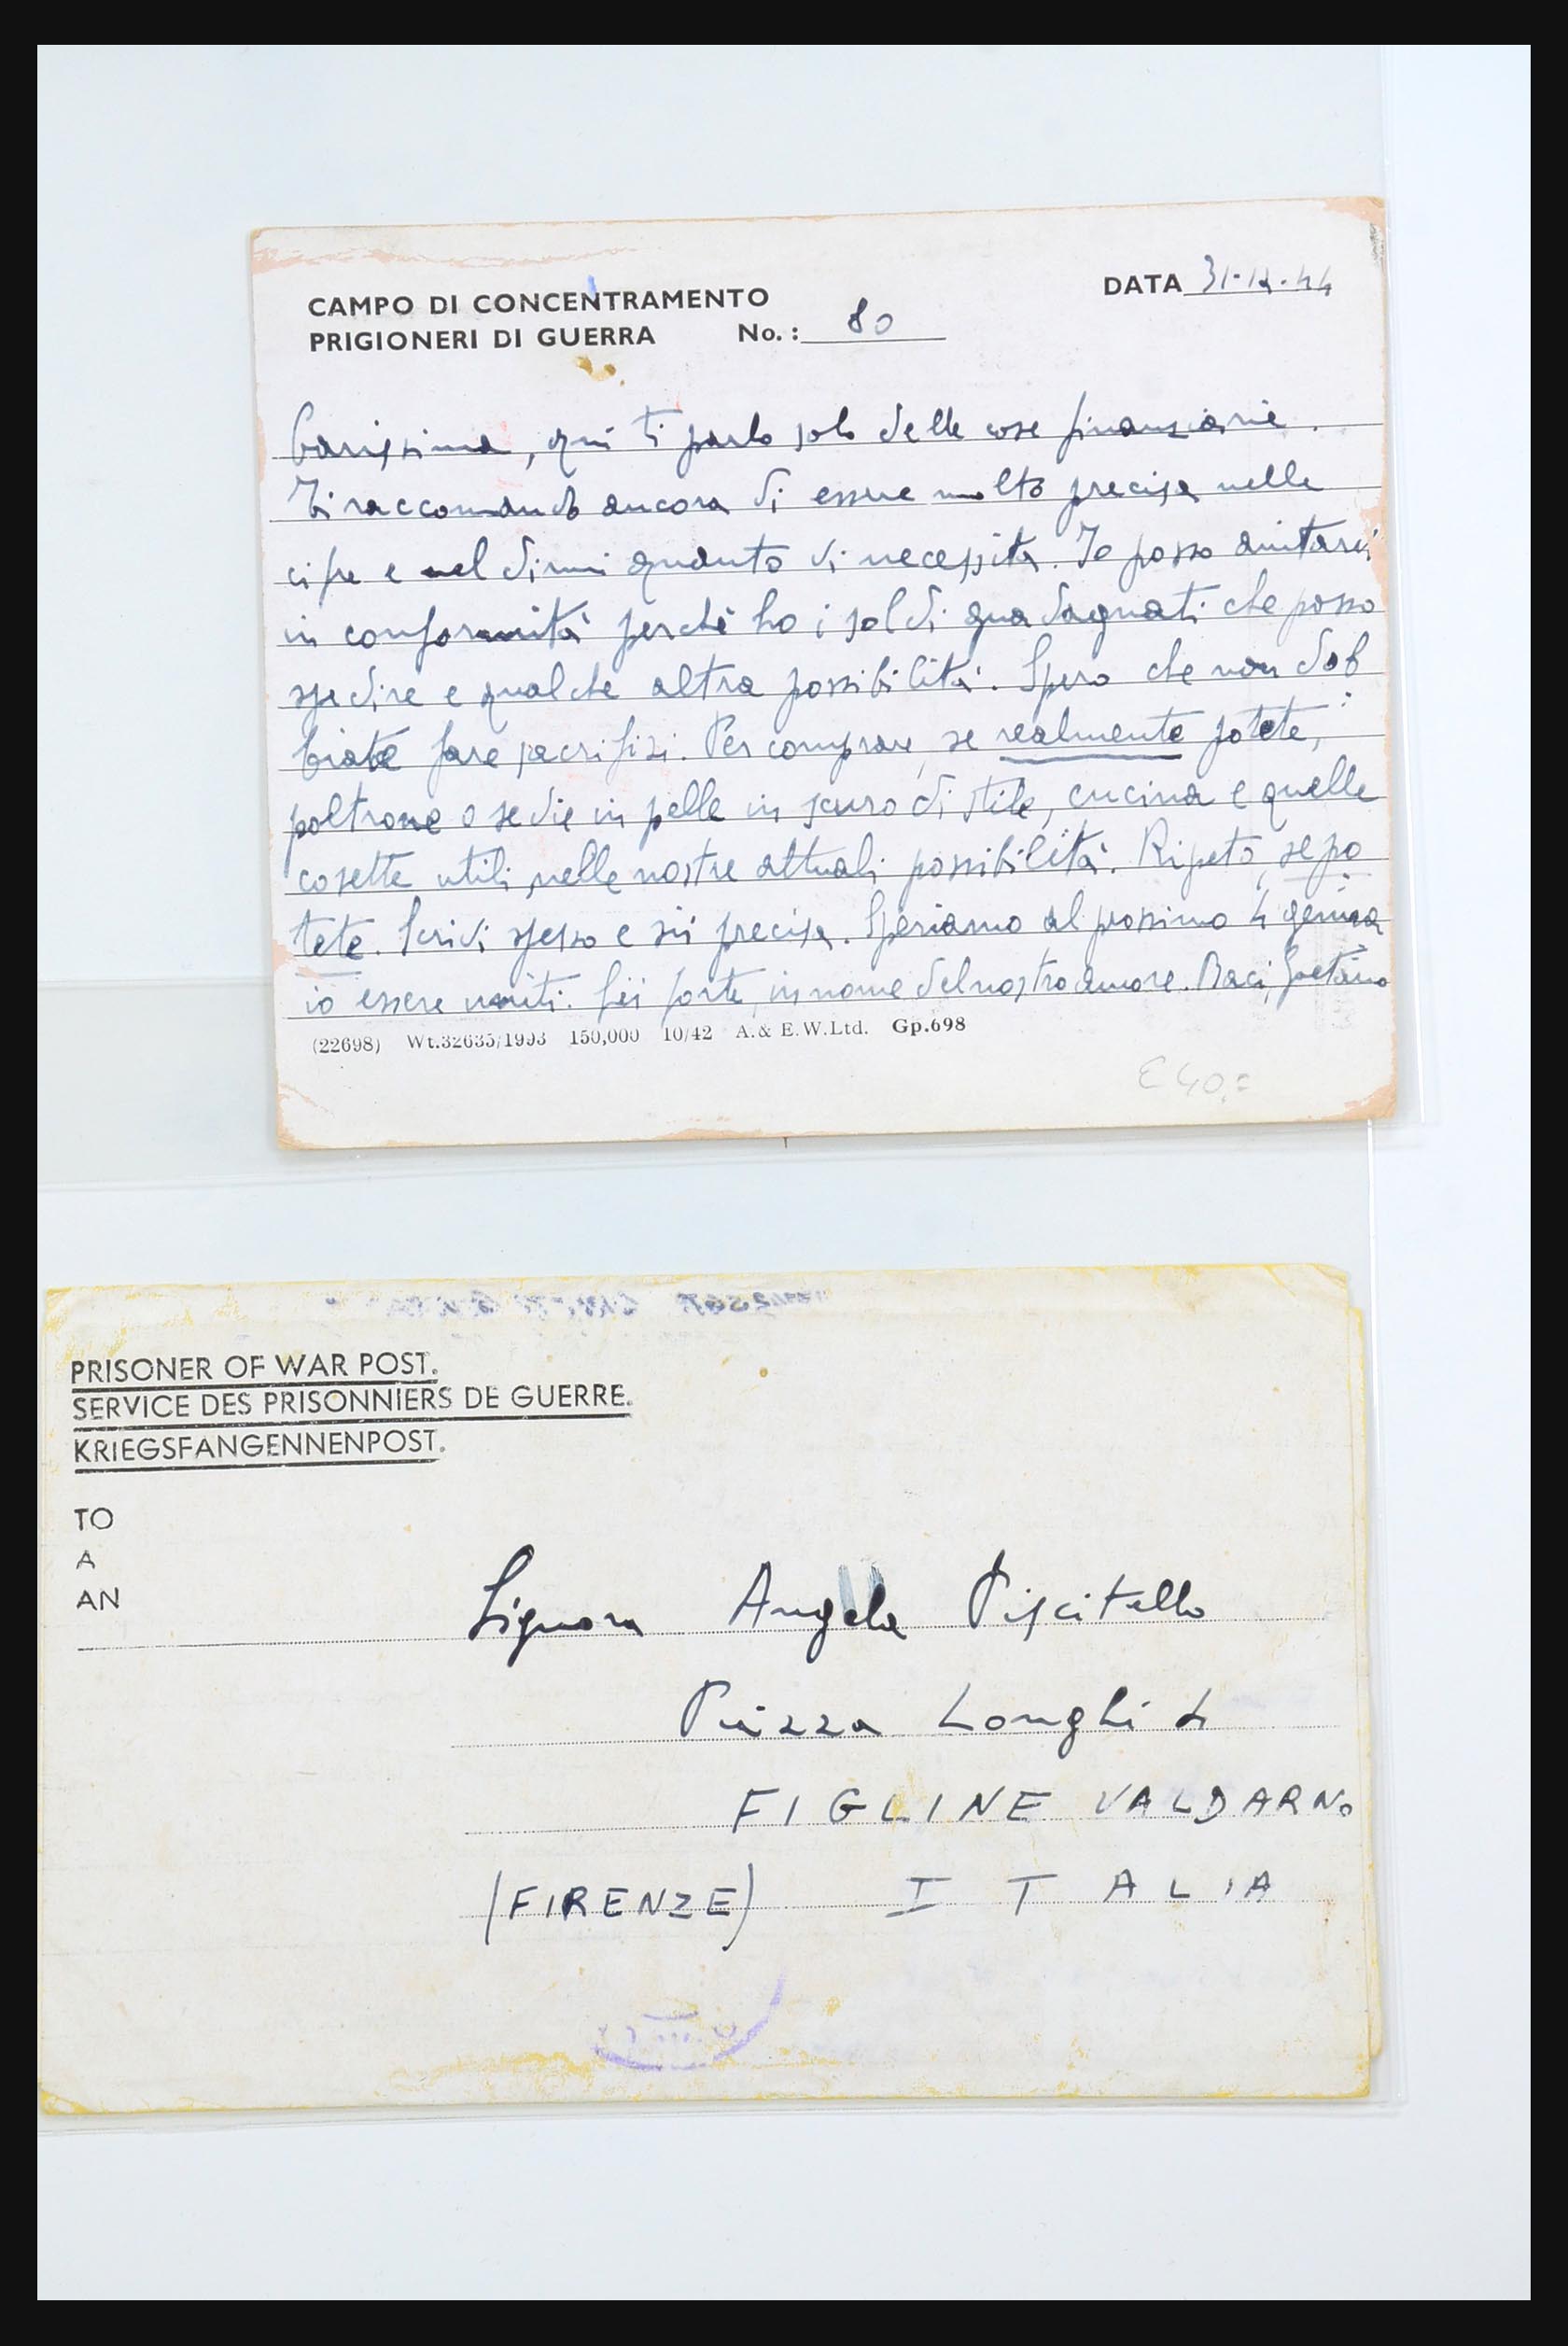 CAMPO DI CONCENTRAMENTO
PRIGIONERI DI GUERRA No. : 80
DATA 31-12-44
Carissima, qui ti parlo solo delle cose finanziarie.
Ti raccomando ancora di essere molto precisa nelle
cifre e nel dirmi quanto vi necessita. Io posso aiutarvi
in conformità perché ho i soldi guadagnati che posso
spedire e qualche altra possibilità. Spero che non dob
biate fare sacrifizi. Per comprare, se realmente potete,
poltrone o sedie in pelle in scuro di stile, cucina e quelle
cosette utili nelle nostre attuali possibilità. Ripeto, se po
tete. Scrivi spesso e sii precisa. Speriamo al prossimo 4 genna
io essere uniti. Sii forte, in nome del nostro amore. Baci, Gaetano
(22698) Wt.32635/1993 150,000 10/42 A.& E.W.Ltd. Gp.698
€ 40,=
PRISONER OF WAR POST.
SERVICE DES PRISONNIERS DE GUERRE.
KRIEGSFANGENNENPOST.
TO
A
AN
Signora Angela Piscitello
Piazza Longhi 4
FIGLINE VALDARNO
(FIRENZE) ITALIA